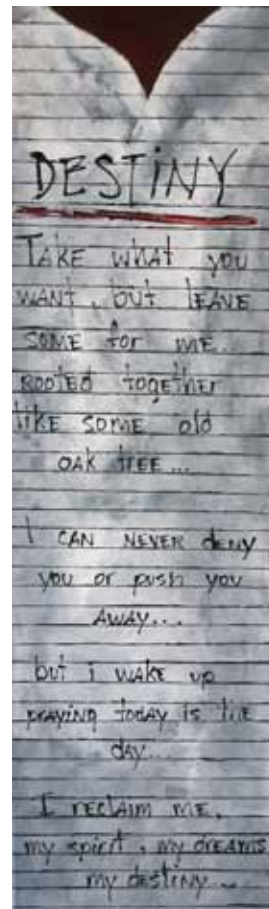 DESTiNY
TAKE what you
WANT, but lEAVE
SOME for ME...
ROOTED together
likE SOME old
OAK tREE...
I CAN NEVER dENy
you or push you
AWAY...
but i WAKE up
pRAYING today is the
day...
I REClAIM ME,
my spirit, my dREAMS
my destiny...